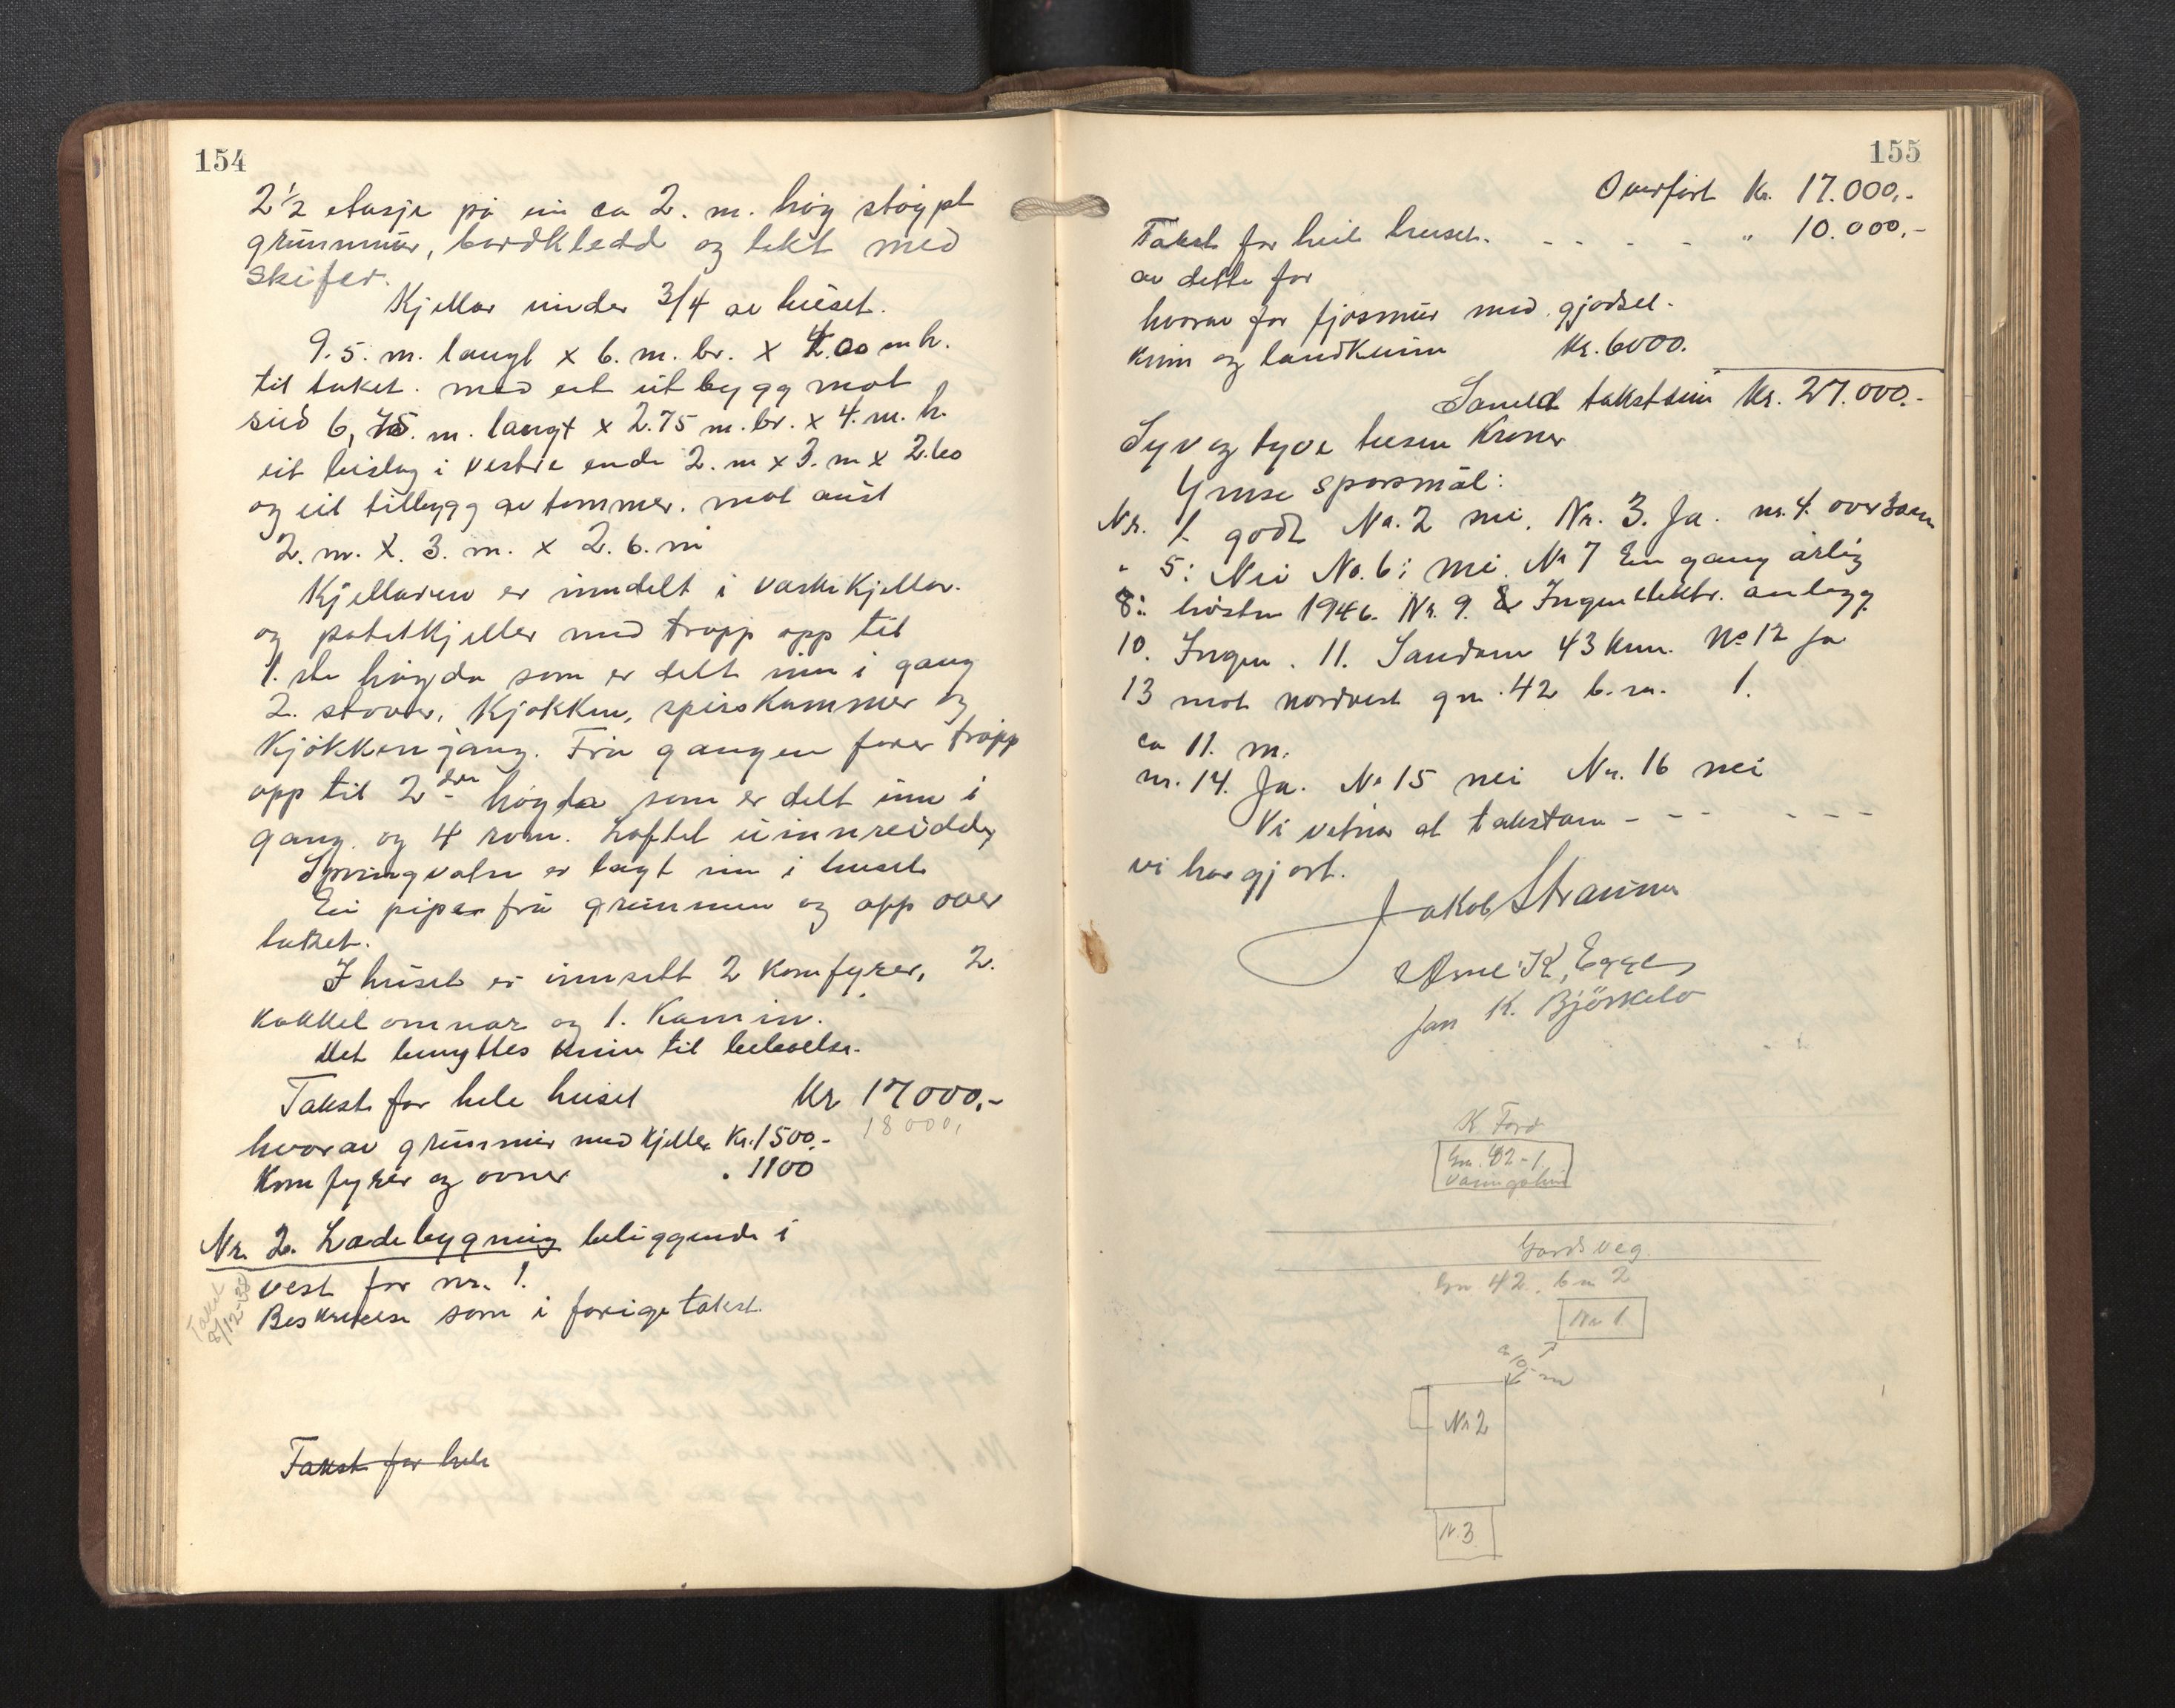 154
2½ etasje på ein ca 2. m. høg støypt
grunnmur, bordkledd og tekt med
skifer.
Kjellar under 3/4 av huset.
9.5. m. langt x 6. m. br. x 4.00 m h.
til taket. med eit utbygg mot
sud 6,75. m. langt x 2.75 m. br. x 4. m. h.
eit bislag i vestre ende 2. m x 3. m x 2.60
og eit tilbygg av tømmer. mot aust
2. m. x. 3. m. x 2. 6. m
Kjellaren er inndelt i vaskekjellar.
og potetkjeller med tropp opp til
1. ste høgda som er delt inn i gang
2. stover, Kjøkken, spiskammer og
Kjøkkengang. Frå gangen fører tropp
opp til 2dre høgda som er delt inn i
gang. og 4 rom. Loftet uinnreidd
Springvatn er lagt inn i huset
Ein pipe frå grunnen og opp over
taket.
I huset er innsett 2 komfyrer, 2.
kakkelomnar og 1. Kamin.
Det benyttes kunn til beboelse.
Takst for hele huset Kr 17000,-
18000,
hvorav grunnmur med kjeller Kr. 1500,-
Komfyrer og ovner . 1100
Nr. 2. Ladebygning beliggende i
vest for nr. 1.
Takst 8/12-38
Beskrivelse som i forige takst.
Takst for hele
155
Overført Kr. 17.000,-
Takst for heile huset. - - - - " 10.000,-
av dette for
hvorav for fjøsmur med gjødsel-
kum og landkum Kr. 6000.
Samla takstsum Kr. 27.000.-
Syv og tyve tusen Kroner
Ymse spørsmål:
Nr. 1. godt Nr. 2 nei. Nr. 3. Ja. nr. 4.
" 5: Nei No. 6: nei. Nr 7 En gang årlig
8: høsten 1946. Nr. 9. Ingen elektr. anlegg
10. Ingen. 11. Sandane 43 km. No 12 Ja
13 mot nordvest gn. 42 b. nr. 1.
ca 11. m.
nr. 14. Ja. Nr 15 nei Nr. 16 nei
Vi vitnar at takstane - - - - - -
vi har gjort.
Jakob Straume
Arne K. Egge
Jan K. Bjørkelo
Gn. 42-1
Gardsveg.
Gn 42. bn 2
Nr 1.
ca 10 m
Nr 2
N. 3